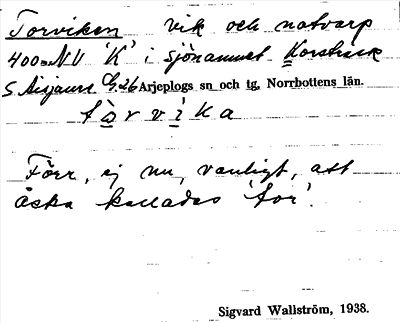 Torviken vik och notvarp
400 m NV 'K' i sjönamnet Korsträsk
S. Aisjaure G.26 Arjeplogs sn och tg, Norrbottens län.
tàrvìka
Förr, ej nu, vanligt, att
åska kallades 'tor'.
Sigvard Wallström, 1938.